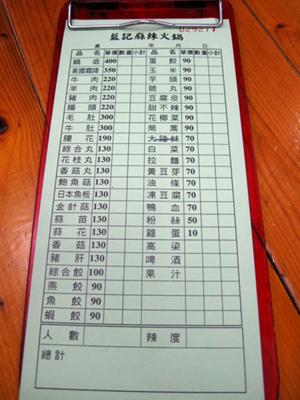 029271
藍記麻辣火鍋
桌 年 月 日
品名 單價 數量 小計 品名 單價 數量 小計
鍋底 400 蛋餃 90
美國霜降 350 玉米 90
牛肉 220 芋頭 90
羊肉 220 脆丸 90
豬肉 220 豆腐皮 90
腸頭 220 甜不辣 90
毛肚 300 花椰菜 90
牛肚 300 茼蒿 90
腰花 190 大陸妹 70
綜合丸 130 白菜 70
花枝丸 130 拉麵 70
香菇丸 130 黃豆芽 70
鮑魚菇 130 油條 70
日本魚板 130 凍豆腐 70
金針菇 130 鴨血 70
蒜苗 130 粉絲 50
蒜花 130 雞蛋 10
香菇 130 高梁
豬肝 130 啤酒
綜合餃 100 果汁
燕餃 90
魚餃 90
蝦餃 90
人數 辣度
總計